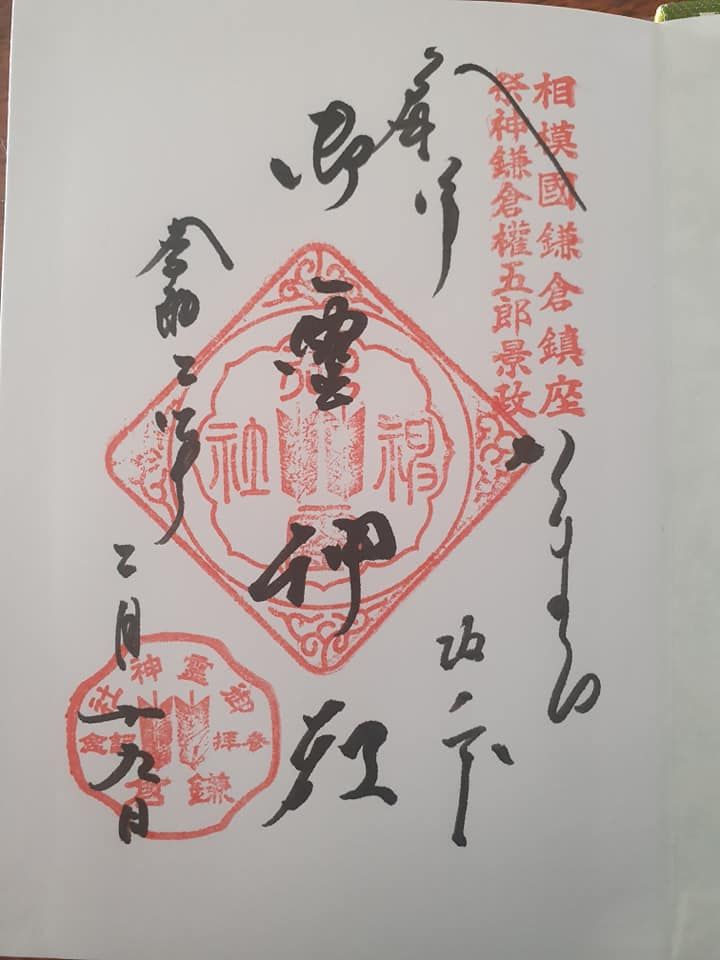 相模國鎌倉鎮座
祭神鎌倉權五郎景政
奉拝
かまくら
坂ノ下
御霊神社
令和二年
二月十九日
神
社
御霊神社
参拝記念
鎌倉